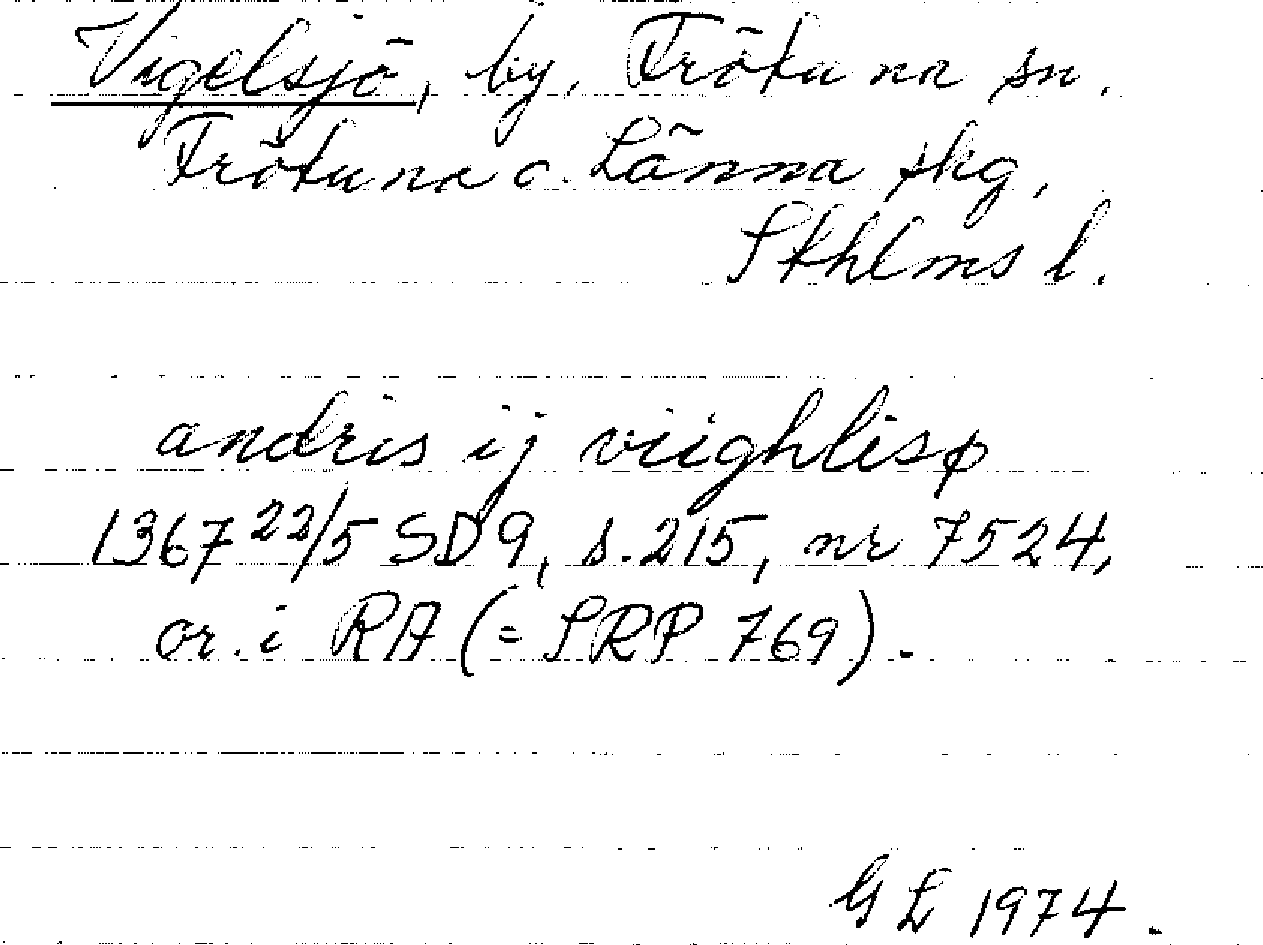 Vigelsjö, by, Frötuna sn.
Frötuna o. Länna skg,
Sthlms l.
andris ij viighlisø
1367 22/5 SD9, s. 215, nr 7524,
or. i RA (= SRP 769).
GL 1974.